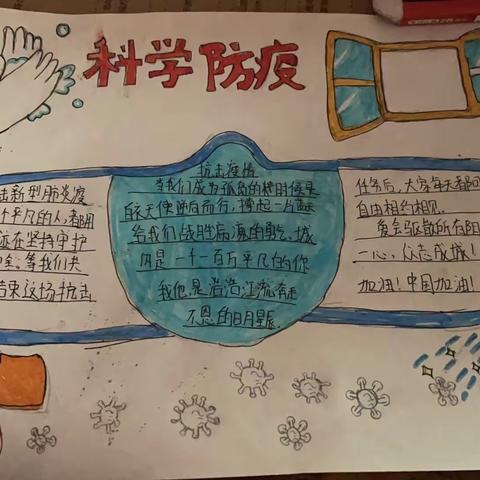 科学防疫
击新型肺炎疫
个平凡的人,都用
在坚持守护
全,等我们共
结束这场抗击
抗击疫情
当我们成为孤岛的时候
白衣天使逆向而行,撑起一片蓝天
给我们战胜病魔的勇气、城
内是一千一百万平凡的你
我他,是浩浩江流,
不息的日月星辰.
任务后,大家每天都可
自由相约相见。
爱会驱散所有阴
一心,众志成城!
加油!中国加油!